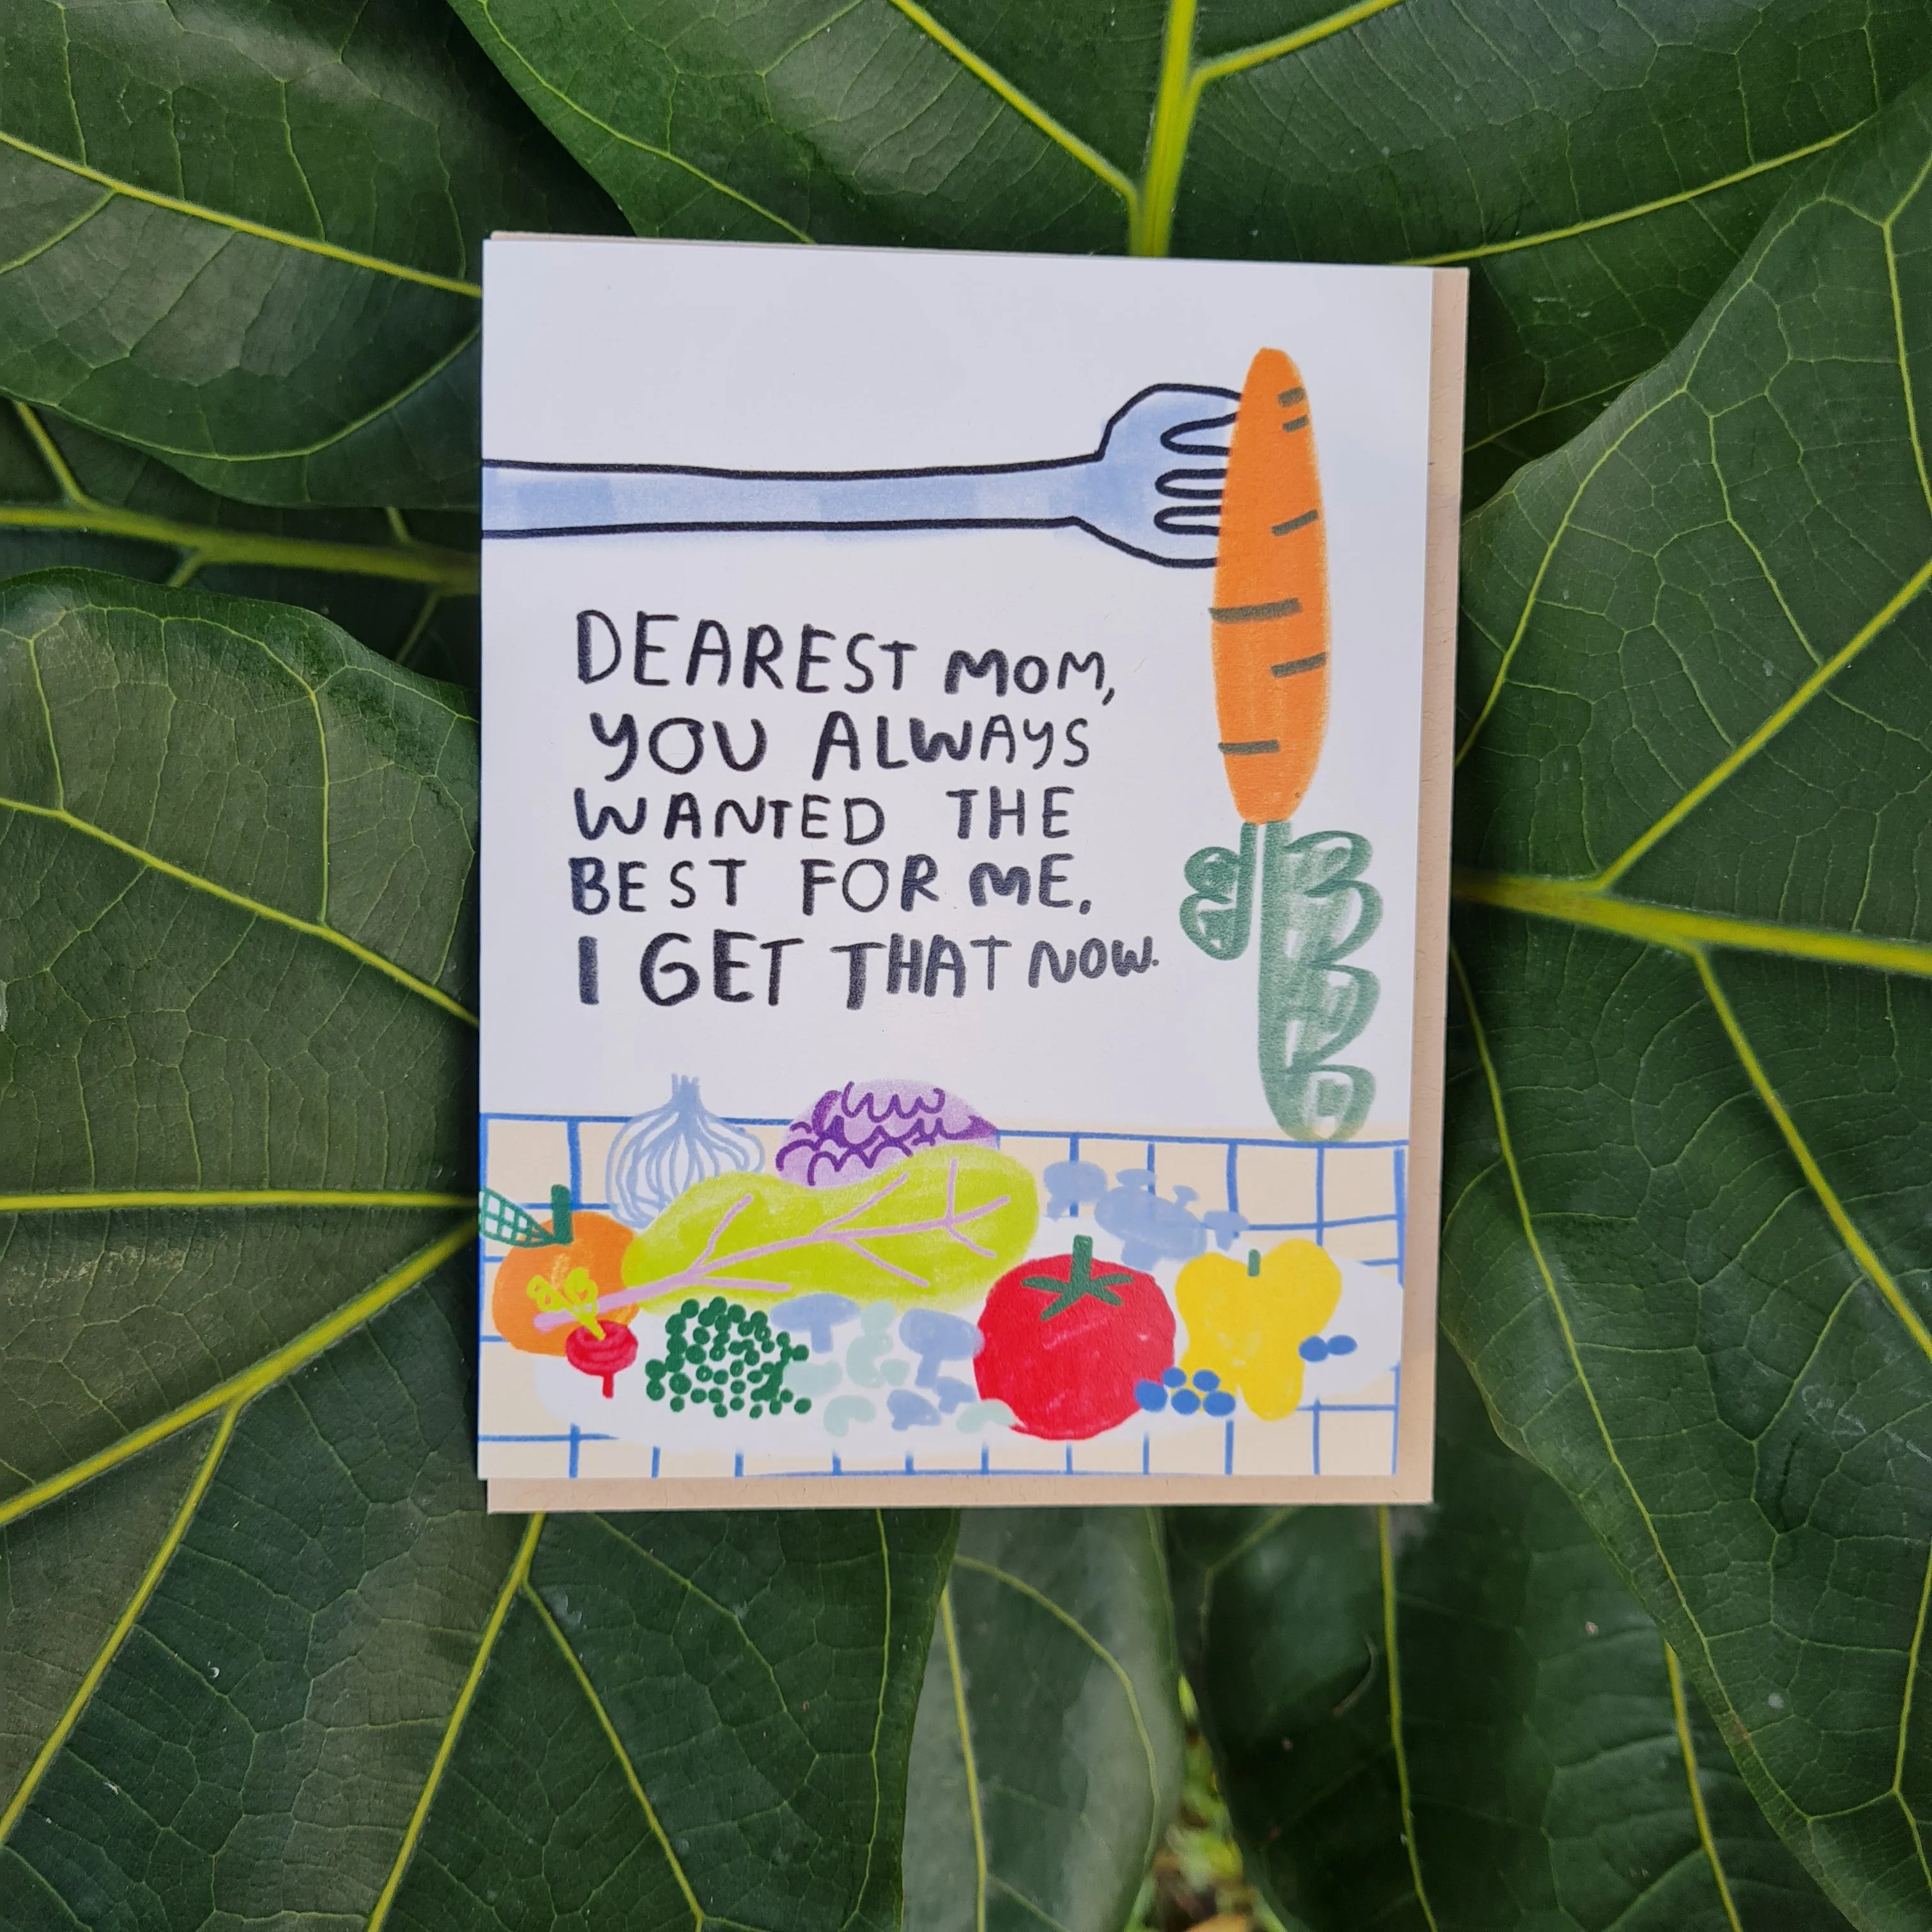 DEAREST MOM,
YOU ALWAYS
WANTED THE
BEST FOR ME.
I GET THAT NOW.